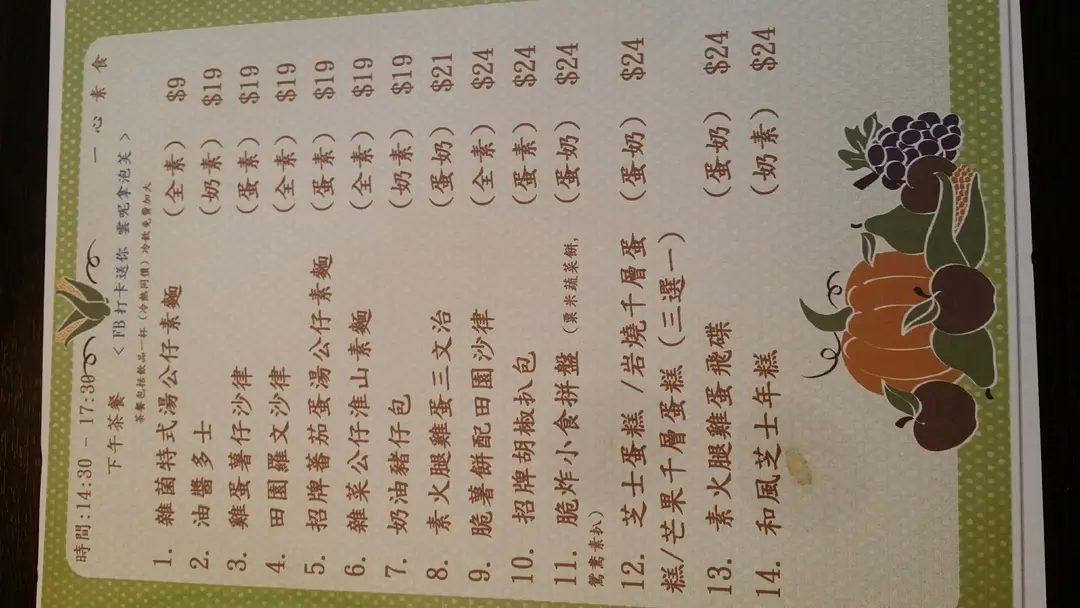 一心素食
時間:14:30 - 17:30
下午茶餐 < FB 打卡送你 雲呢拿泡芙 >
茶餐包括飲品一杯 (冷熱同價) 冷飲免費加大
1. 雜菌特式湯公仔素麵 (全素) $9
2. 油醬多士 (奶素) $19
3. 雞蛋薯仔沙律 (蛋素) $19
4. 田園羅文沙律 (全素) $19
5. 招牌蕃茄蛋湯公仔素麵 (蛋素) $19
6. 雜菜公仔淮山素麵 (全素) $19
7. 奶油豬仔包 (奶素) $19
8. 素火腿雞蛋三文治 (蛋奶) $21
9. 脆薯餅配田園沙律 (全素) $24
10. 招牌胡椒扒包 (蛋素) $24
11. 脆炸小食拼盤 (粟米蔬菜餅, (蛋奶) $24
鴛鴦素扒)
12. 芝士蛋糕 /岩燒千層蛋 (蛋奶) $24
糕/芒果千層蛋糕 (三選一)
13. 素火腿雞蛋飛碟 (蛋奶) $24
14. 和風芝士年糕 (奶素) $24